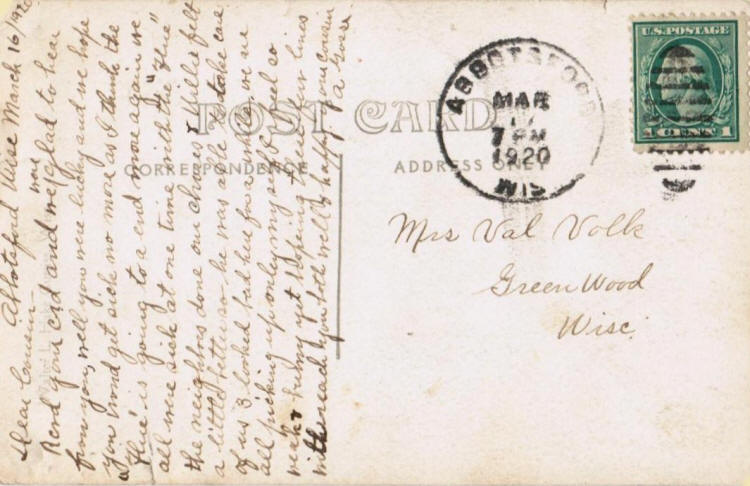 Abbotsford Wisc March 16/1920
Dear Cousin
Recd your card and was glad to hear
from you, well you were lucky and we hope
you wond get sick no more as I think the
"Flue" is going to a end once again we
all were sick at one time with the "Flue"
the neighbors done our chores & Willie felt
a little better so he was able to take care
of us 3 looked bad here for a while we are
all picking up only my self I feel so
weak & rumy yet Hoping these few lines
will reach you both well & happy your cousin
POST CARD
CORRESPONDENCE
ADDRESS ONLY
ABBOTSFORD
MAR
17
7 PM
1920
WIS
U.S. POSTAGE
1 CENT 1
Mrs Val Volk
GreenWood
Wisc.